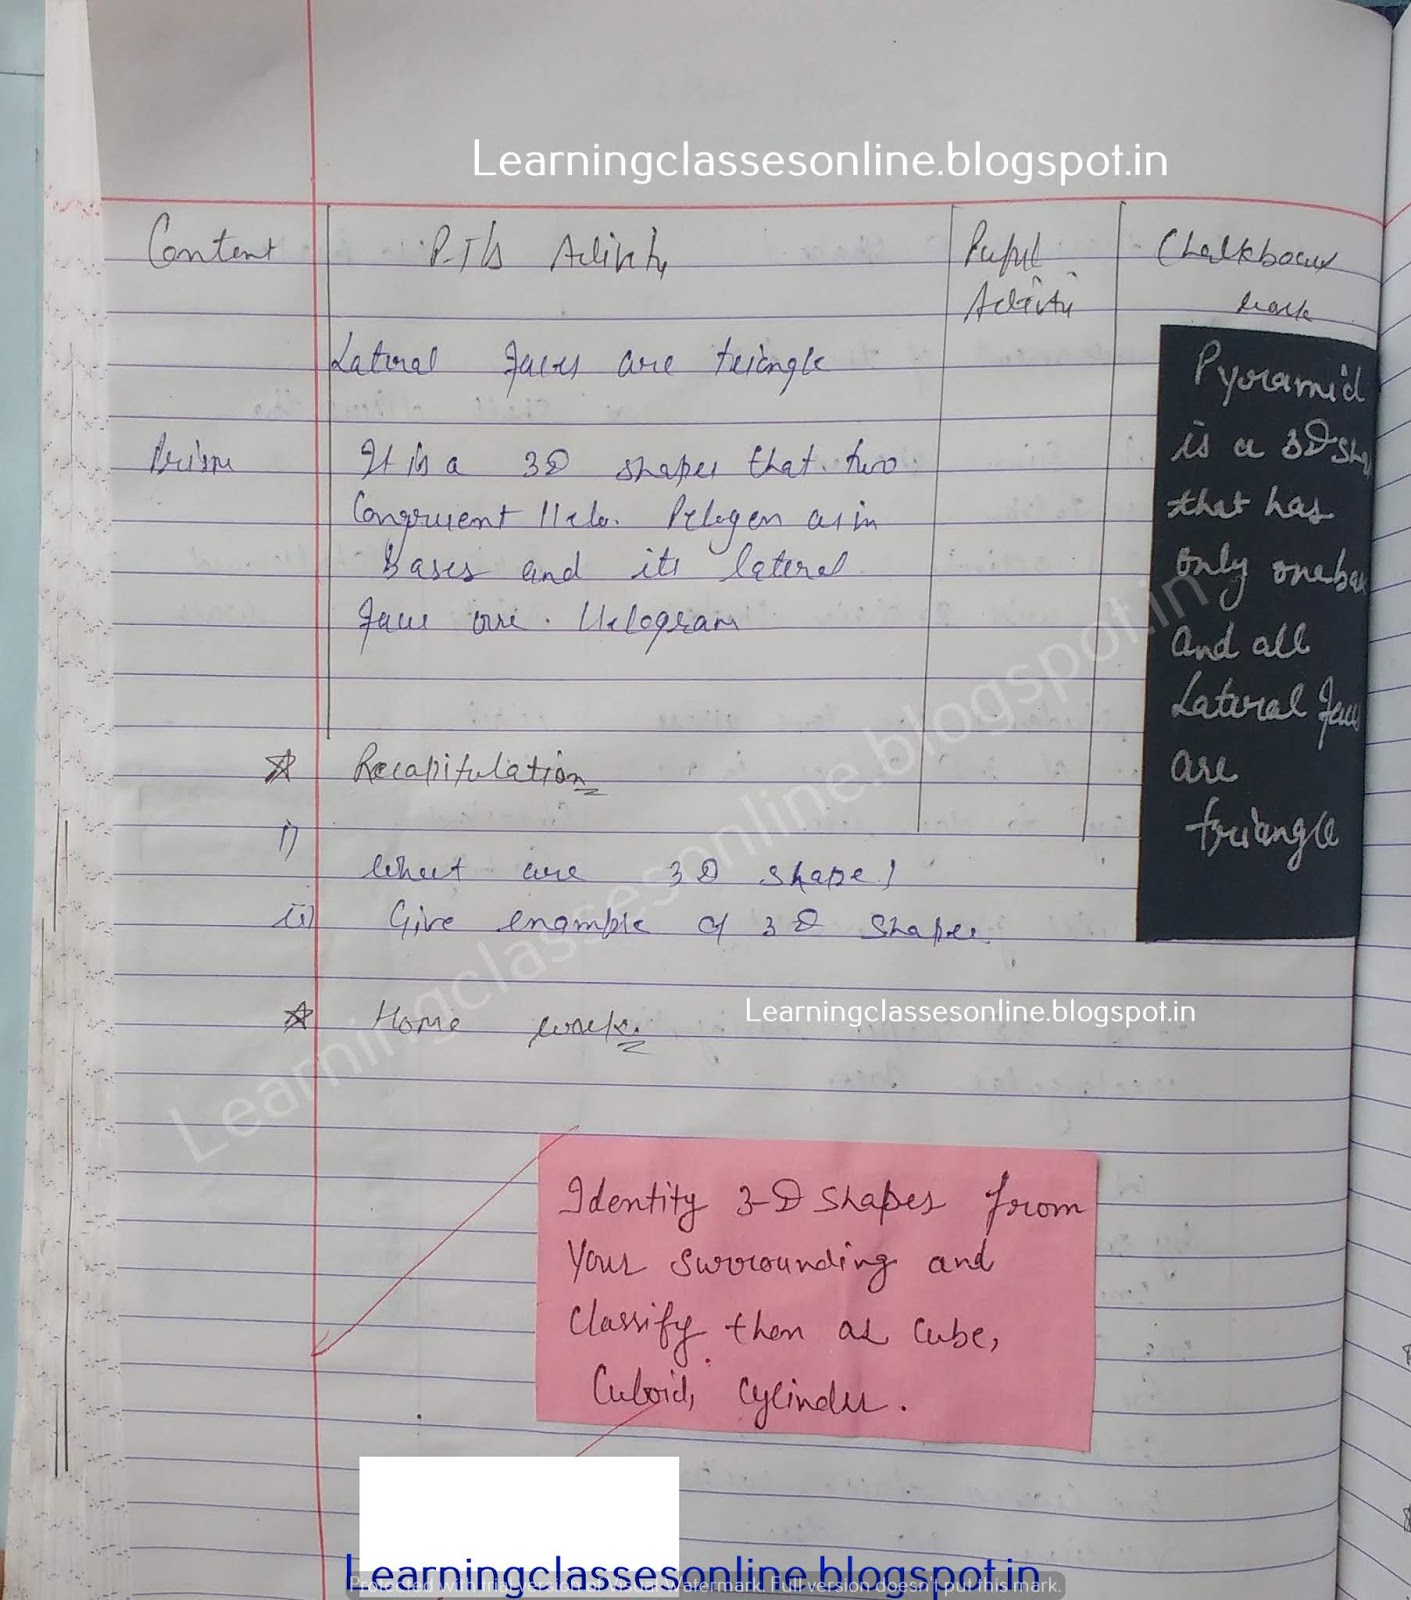 Learningclassesonline.blogspot.in
Content P.T's Activity Pupil Chalkboard
Activity work
Lateral faces are triangle
Prism It is a 3D shapes that two
Congruent ||elo. Pologen as in
Bases and its lateral
face are. ||elogram
Pyramid
is a 3D Sha
that has
only one bas
and all
Lateral faces
are
triangle
☆ Recapitulation
i) What are 3D shape?
ii) Give example of 3D Shapes
☆ Home work.
Learningclassesonline.blogspot.in
Learningclassesonline.blogspot.in
Identity 3-D shapes from
Your surrounding and
classify them as cube,
Cuboid, cylinder.
Learningclassesonline.blogspot.in
Protected with trial version of Visual Watermark. Full version doesn't put this mark.